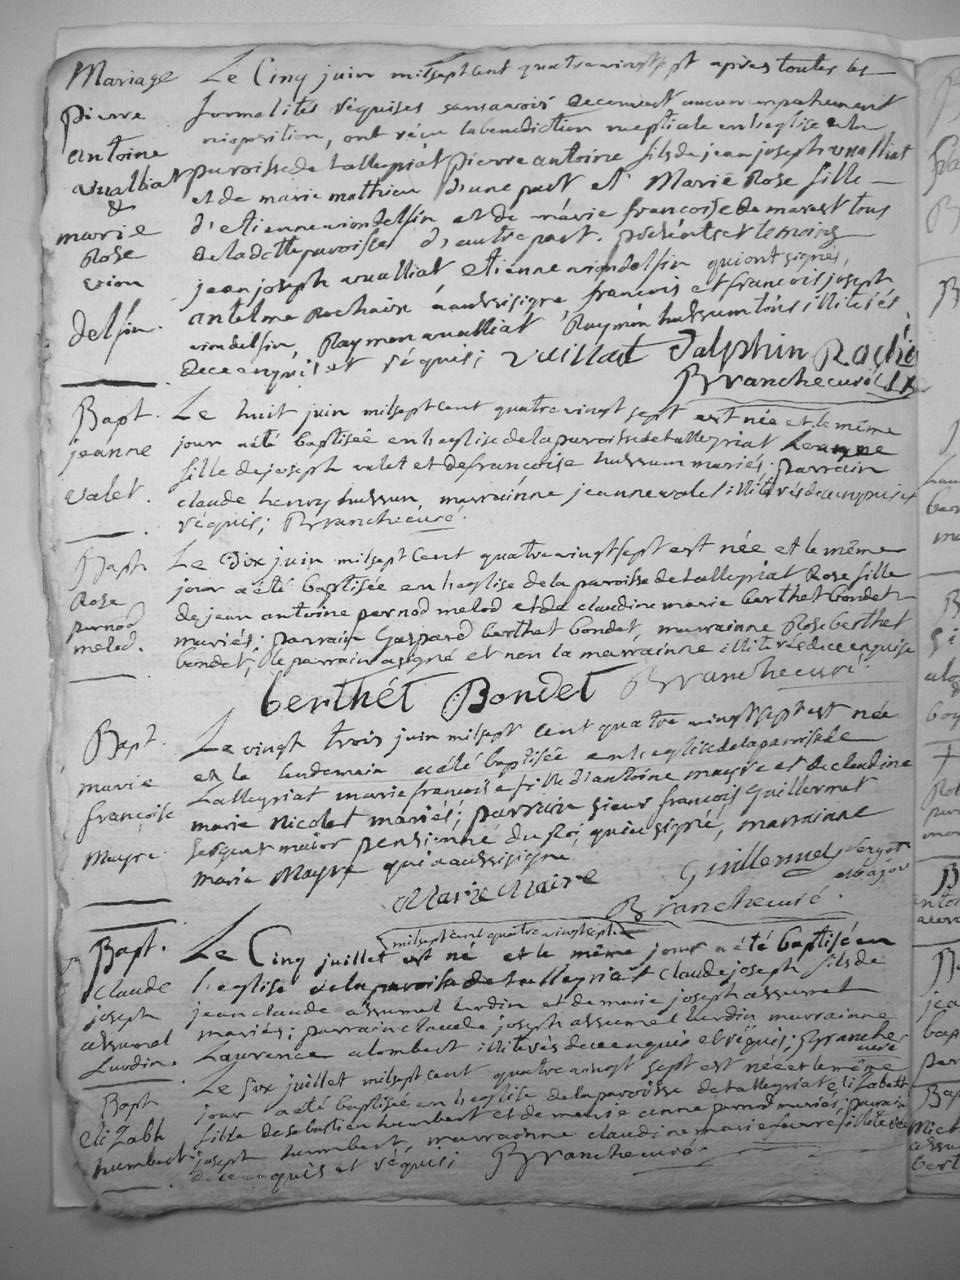 Mariage
Pierre
antoine
vualliat
&
marie
Rose
vion
delfin.
Le Cinq juin milseptcent quatrevingtsept apres toutes les
formalités réquises sansavoir decouvert aucun empechement
nioposition, ont réçu labenediction nuptiale en léglise de la
paroisse de tallegriat pierre antoine fils de jean joseph vualliat
et de marie mathieu d'une part et Marie Rose fille
d'etienne viondelfin et de marie francoise de marest tous
de la dette paroisse d'autre part. présents et temoins
jean joseph vualliat etienne viondelfin qui ont signés,
antelme Rochaix a aussi signé, francois et francois joseph
viondelfin, Raymon vualliat, Raymon hussum tous illitérés
de ce enquis et réquis; vuillat Dalphin
Branche curé
Bapt.
jeanne
valet.
Le huit juin milseptcent quatrevingt sept est née et le même
jour a été baptisée en léglise de la paroisse de tallegriat Jeanne
fille de joseph valet et de francoise hussum mariés; parrain
claude henry hussum, marrainne jeanne valet illitérés de ce enquis et
réquis; Branche curé.
Bapth
Rose
pernod
melod.
Le Dix juin milseptcent quatrevingtsept est née et le même
jour a été baptisée en léglise de la paroisse de tallegriat Rose fille
de jean antoine pernod melod et de claudine marie berthet bondet
mariés; parrain Gaspard berthet bondet, marrainne Rose berthet
bondet; le parrain a signé et non la marrainne illitérée de ce enquise
berthét Bondet Branche curé.
Bapt.
marie
françoise
Mayre
Le vingt trois juin milsept cent quatre vingtsept est née
et le lendemain a été baptisée en léglise de la paroisse de
tallegriat marie francoise fille d'antoine mayre et de claudine
marie Nicolet mariés; parrain sieur francois Guillermet
sergent maior pensionné du Roi, qui a signé, marrainne
marie Mayre qui a aussi signé
Marie Maire Guillermet sergent
major
Branche curé.
Bapt.
claude
joseph
assumel
Lurdin.
milseptcent quatrevingtsept
Le Cinq juillet est né et le même jour a été baptisé en
l'eglise de la paroisse de tallegriat claude joseph fils de
jean claude assumel lurdin et de marie joseph assumel
mariés; parrain claude joseph assumel lurdin marrainne
Laurence alombert illitérés de ce enquis et réquis; Branche
curé
Bapth
elizabh
humbert
Le six juillet milseptcent quatrevingt sept est née et le même
jour a été baptisée en léglise de la paroisse de tallegriat elizabeth
fille de sebastien humbert et de marie anne pernod mariés; parrain
joseph humbert, marrainne claudine marie favre illitérés
de ce enquis et réquis; Branche curé.